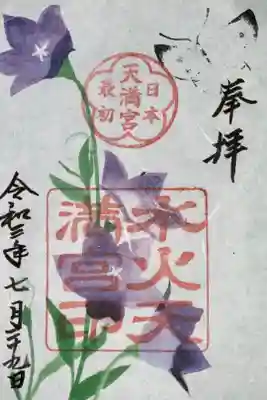 奉拝
日本
天満宮
最初
水火天
満宮印
令和三年七月二十九日